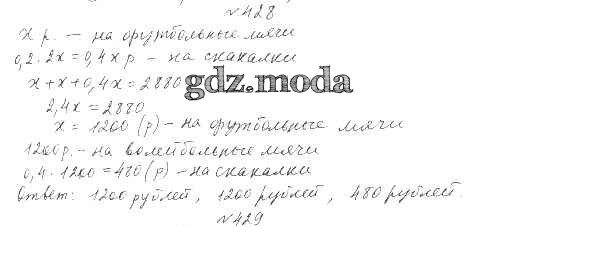 №428
x р. – на футбольные мячи
0,2·2x = 0,4x р – на скакалки
x + x + 0,4x = 2880
gdz.moda
2,4x = 2880
x = 1200 (р) – на футбольные мячи
1200р. – на волейбольные мячи
0,4·1200 = 480 (р) – на скакалки
Ответ: 1200 рублей, 1200 рублей, 480 рублей.
№429